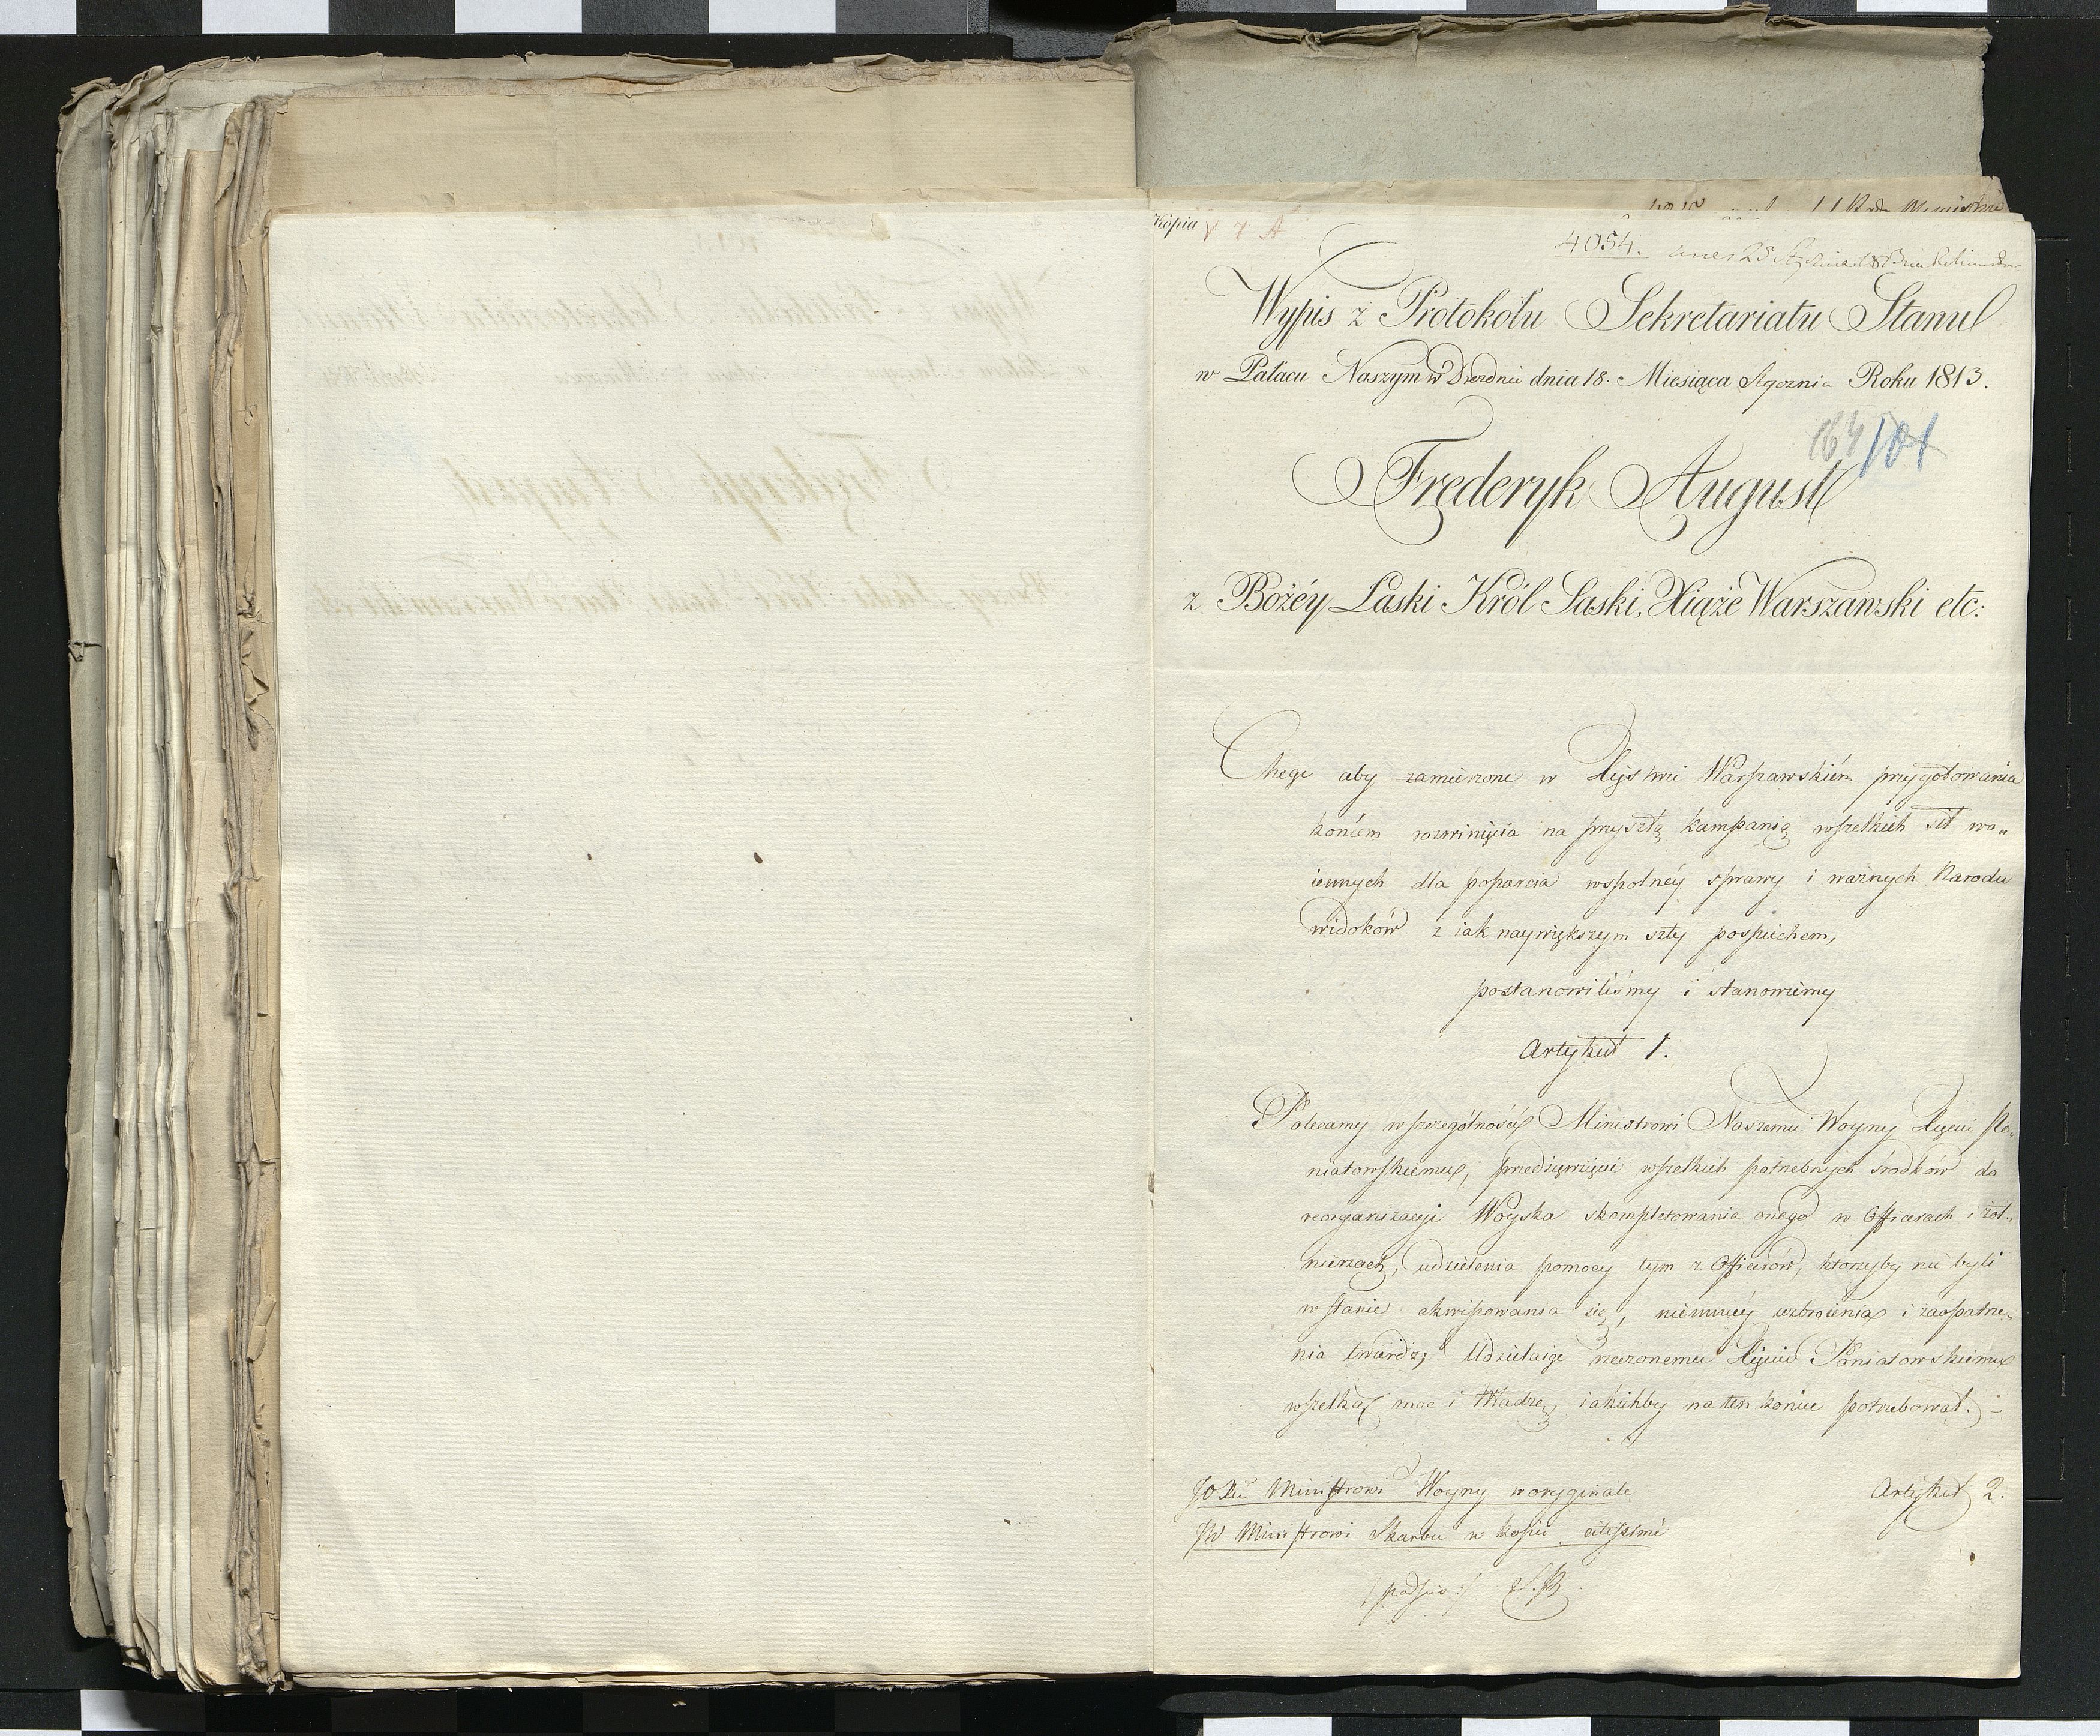 Kopia
4054.
Wypis z Protokołu Sekretariatu Stanu
w Pałacu Naszym w Dreźnie dnia 18. Miesiąca Stycznia Roku 1813.
164 101
Frederyk August
z Bożéy Łaski Król Saski, Xiąże Warszawski etc:
Chcąc aby zamierzone w Xięstwie Warszawskiém przygotowania
końcem rozwinięcia na przyszłą kampanią wszelkich sił wo„
iennych dla poparcia wspolnéy sprawy i ważnych Narodu
widoków z iak naywiększym szły pospiechem,
postanowiliśmy i stanowiemy
Artykuł 1.
Polecamy w szczególności Ministrowi Naszemu Woyny Xięciu Po„
niatowskiemu, przedsięwzięcie wszelkich potrzebnych środków do
reorganizacyi Woyska skompletowania onego w Officerach i żoł„
nierzach, udzielenia pomocy tym z Officerów, którzyby nie byli
w stanie ekwipowania się, niemniéy uzbroienia i zaopatrze„
nia twierdz; Udzielaiąc rzeczonemu Xięciu Poniatowskiemu
wszelką moc i Władzę, iakichby na ten koniec potrzebował.
JO Xciu Ministrowi Woyny w oryginale
Artykuł 2.
JW Ministrowi Skarbu w kopii
/podpis:/ S. B.